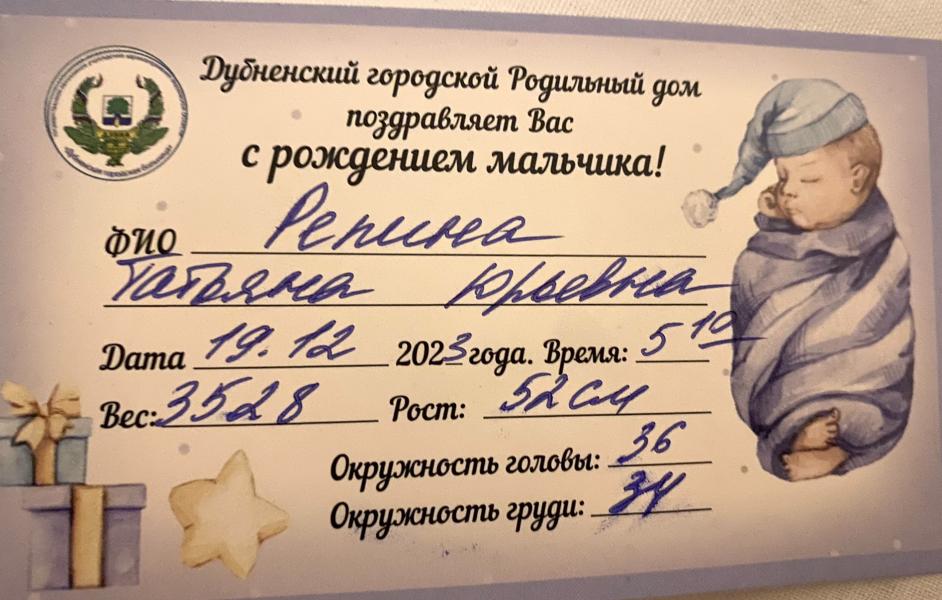 Дубненский городской Родильный дом
поздравляет Вас
с рождением мальчика!
ФИО Репина
Татьяна Юрьевна
Дата 19.12 2023 года. Время: 5 10
Вес: 3528 Рост: 52 см
Окружность головы: 36
Окружность груди: 34